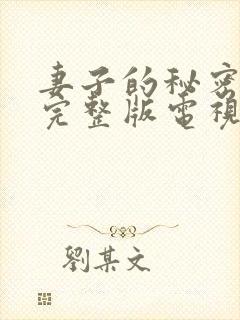 妻子的秘密
完整版電視
劉某文